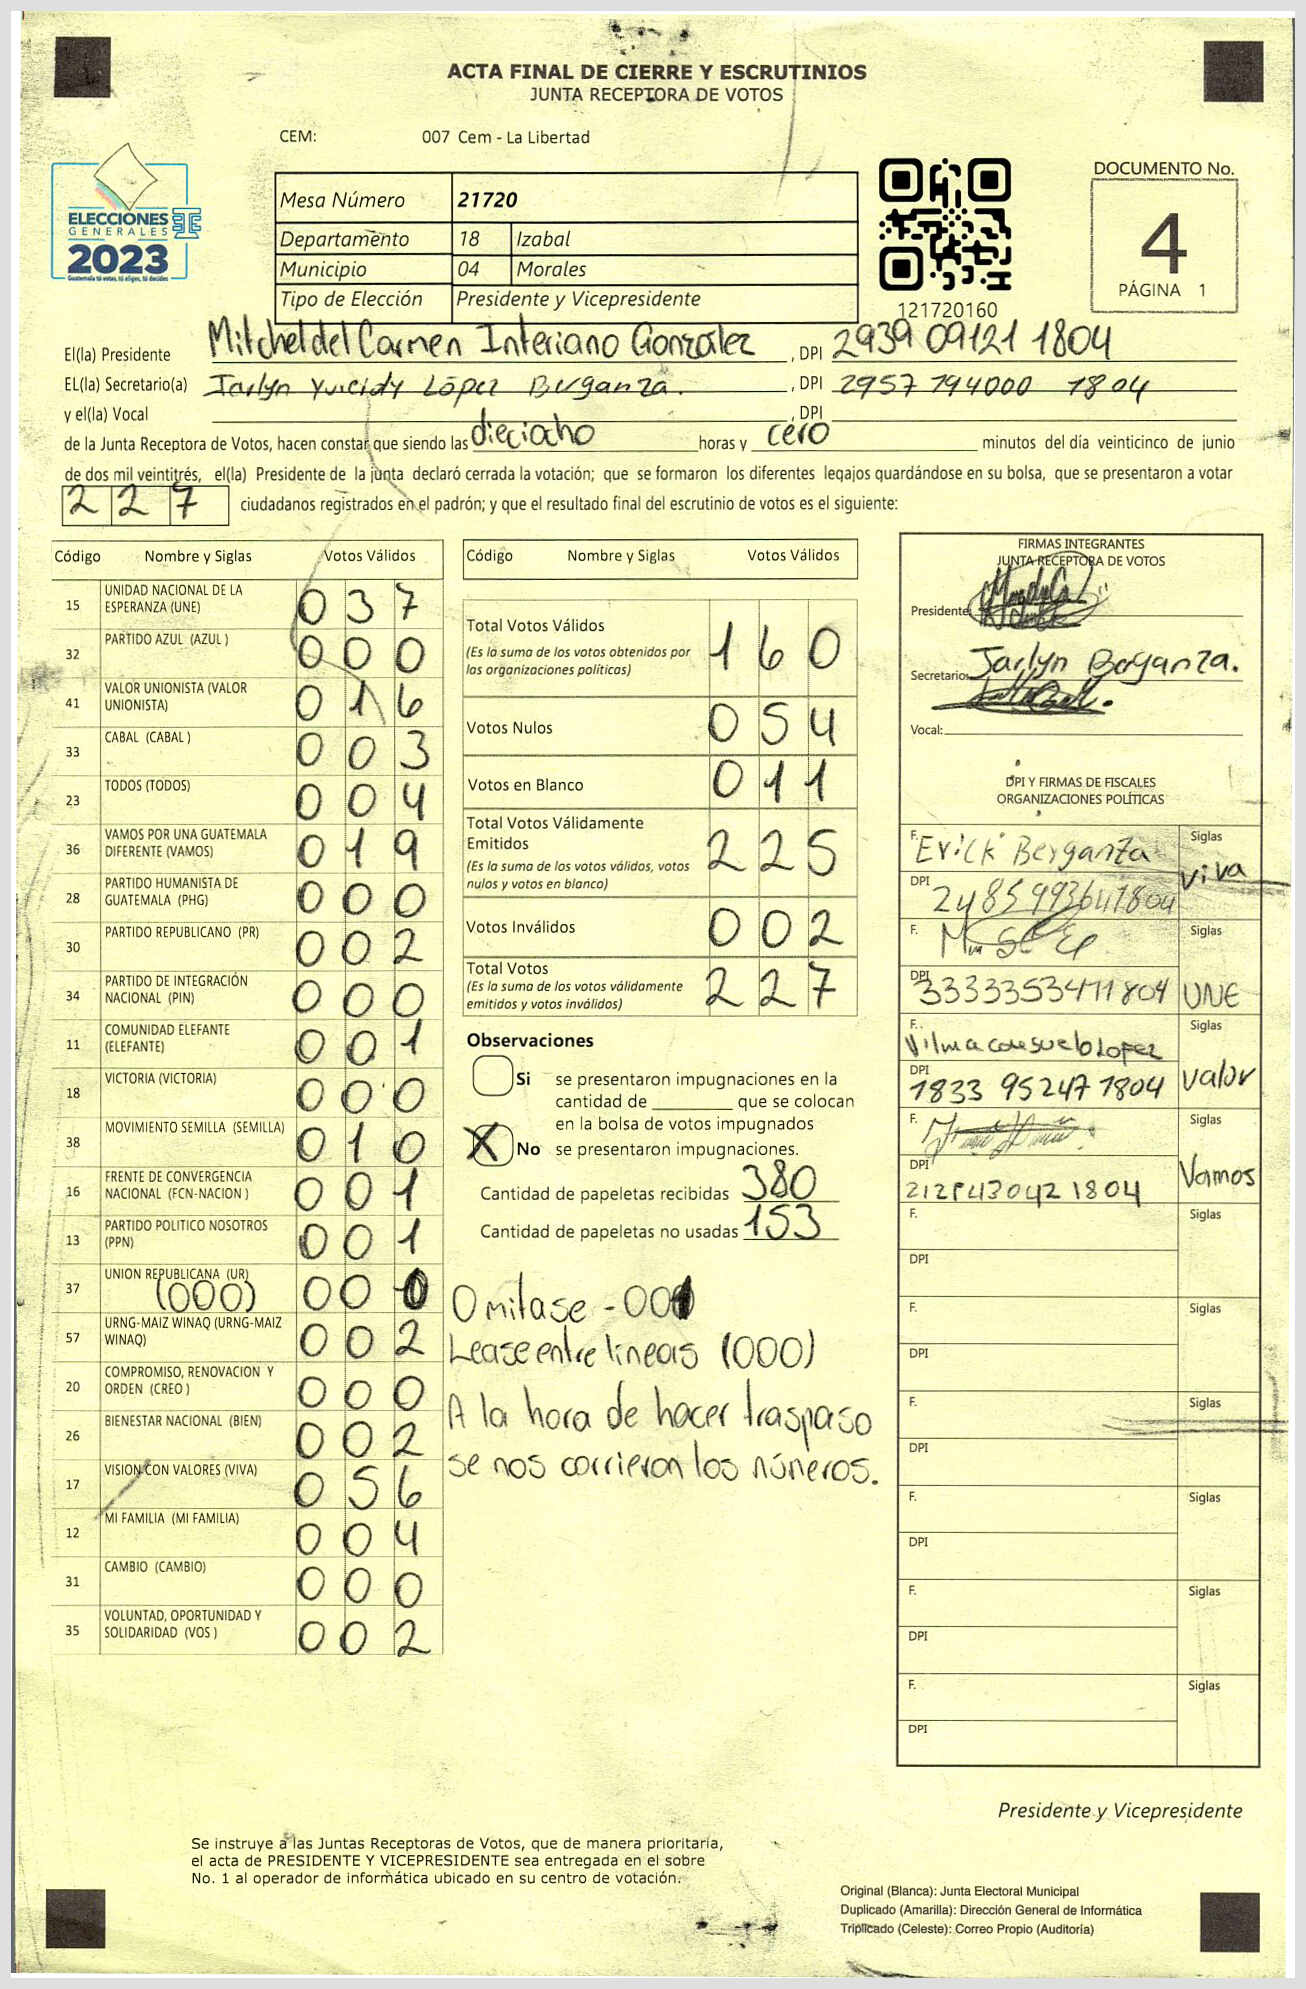 ACTA FINAL DE CIERRE Y ESCRUTINIOS
JUNTA RECEPTORA DE VOTOS
CEM: 007 Cem - La Libertad
ELECCIONES
GENERALES
2023
Guatemala tú votas, tú eliges, tú decides
Mesa Número 21720
Departamento 18 Izabal
Municipio 04 Morales
Tipo de Elección Presidente y Vicepresidente
121720160
DOCUMENTO No.
4
PÁGINA 1
El(la) Presidente Mitchel del Carmen Interiano González, DPI 2939 09121 1804
EL(la) Secretario(a) Jarlyn Yuleidy López Berganza. , DPI 2957 794000 1804
y el(la) Vocal , DPI
de la Junta Receptora de Votos, hacen constar que siendo las dieciocho horas y cero minutos del día veinticinco de junio
de dos mil veintitrés, el(la) Presidente de la junta declaró cerrada la votación; que se formaron los diferentes legajos guardándose en su bolsa, que se presentaron a votar
227 ciudadanos registrados en el padrón; y que el resultado final del escrutinio de votos es el siguiente:
Código Nombre y Siglas Votos Válidos
15 UNIDAD NACIONAL DE LA ESPERANZA (UNE) 037
32 PARTIDO AZUL (AZUL ) 000
41 VALOR UNIONISTA (VALOR UNIONISTA) 016
33 CABAL (CABAL ) 003
23 TODOS (TODOS) 004
36 VAMOS POR UNA GUATEMALA DIFERENTE (VAMOS) 019
28 PARTIDO HUMANISTA DE GUATEMALA (PHG) 000
30 PARTIDO REPUBLICANO (PR) 002
34 PARTIDO DE INTEGRACIÓN NACIONAL (PIN) 000
11 COMUNIDAD ELEFANTE (ELEFANTE) 001
18 VICTORIA (VICTORIA) 000
38 MOVIMIENTO SEMILLA (SEMILLA) 010
16 FRENTE DE CONVERGENCIA NACIONAL (FCN-NACION ) 001
13 PARTIDO POLITICO NOSOTROS (PPN) 001
37 UNION REPUBLICANA (UR) (000) 000
57 URNG-MAIZ WINAQ (URNG-MAIZ WINAQ) 002
20 COMPROMISO, RENOVACION Y ORDEN (CREO ) 000
26 BIENESTAR NACIONAL (BIEN) 002
17 VISION CON VALORES (VIVA) 056
12 MI FAMILIA (MI FAMILIA) 004
31 CAMBIO (CAMBIO) 000
35 VOLUNTAD, OPORTUNIDAD Y SOLIDARIDAD (VOS ) 002
Código Nombre y Siglas Votos Válidos
Total Votos Válidos 160
(Es la suma de los votos obtenidos por
las organizaciones políticas)
Votos Nulos 054
Votos en Blanco 011
Total Votos Válidamente
Emitidos 225
(Es la suma de los votos válidos, votos
nulos y votos en blanco)
Votos Inválidos 002
Total Votos 227
(Es la suma de los votos válidamente
emitidos y votos inválidos)
Observaciones
Si se presentaron impugnaciones en la
cantidad de ________ que se colocan
en la bolsa de votos impugnados
X No se presentaron impugnaciones.
Cantidad de papeletas recibidas 380
Cantidad de papeletas no usadas 153
Omitase - 001
Lease entre lineas (000)
A la hora de hacer traspaso
se nos corrieron los números.
FIRMAS INTEGRANTES
JUNTA RECEPTORA DE VOTOS
Presidente:
Secretario: Jarlyn Berganza.
Vocal:
DPI Y FIRMAS DE FISCALES
ORGANIZACIONES POLÍTICAS
F. Erick Berganza Siglas viva
DPI 2485993641804
F. Siglas UNE
DPI 3333353411804
F. Vilma consuelo Lopez Siglas valor
DPI 1833 95247 1804
F. Siglas Vamos
DPI
F. Siglas
DPI
F. Siglas
DPI
F. Siglas
DPI
F. Siglas
DPI
F. Siglas
DPI
F. Siglas
DPI
Presidente y Vicepresidente
Se instruye a las Juntas Receptoras de Votos, que de manera prioritaria,
el acta de PRESIDENTE Y VICEPRESIDENTE sea entregada en el sobre
No. 1 al operador de informática ubicado en su centro de votación.
Original (Blanca): Junta Electoral Municipal
Duplicado (Amarilla): Dirección General de Informática
Triplicado (Celeste): Correo Propio (Auditoría)